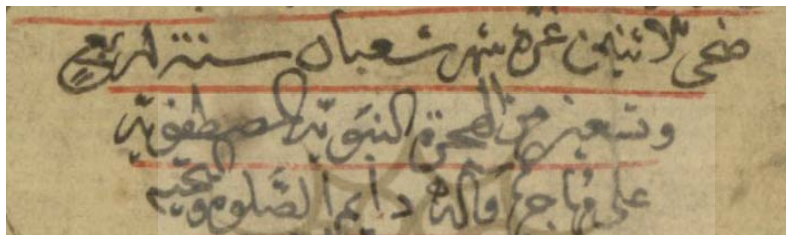 ضحى الاثنين غرة شهر شعبان سنة اربع
وتسعين من الهجرة النبوية المصطفوية
على مهاجرها وآله دايم الصلوة والتحية